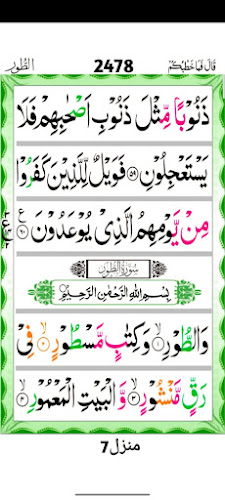 الطُّوْر 2478 قَالَ فَمَا خَطْبُكُمْ
ذَنُوْبًا مِّثْلَ ذَنُوْبِ اَصْحٰبِهِمْ فَلَا
يَسْتَعْجِلُوْنِ ﴿۵۹﴾ فَوَيْلٌ لِّلَّذِيْنَ كَفَرُوْا
مِنْ يَّوْمِهِمُ الَّذِىْ يُوْعَدُوْنَ ﴿۶۰﴾
سُوْرَةُ الطُّوْرِ
بِسْمِ اللّٰهِ الرَّحْمٰنِ الرَّحِيْمِ
وَالطُّوْرِ ﴿۱﴾ وَكِتٰبٍ مَّسْطُوْرٍ ﴿۲﴾ فِىْ
رَقٍّ مَّنْشُوْرٍ ﴿۳﴾ وَّالْبَيْتِ الْمَعْمُوْرِ ﴿۴﴾
منزل7